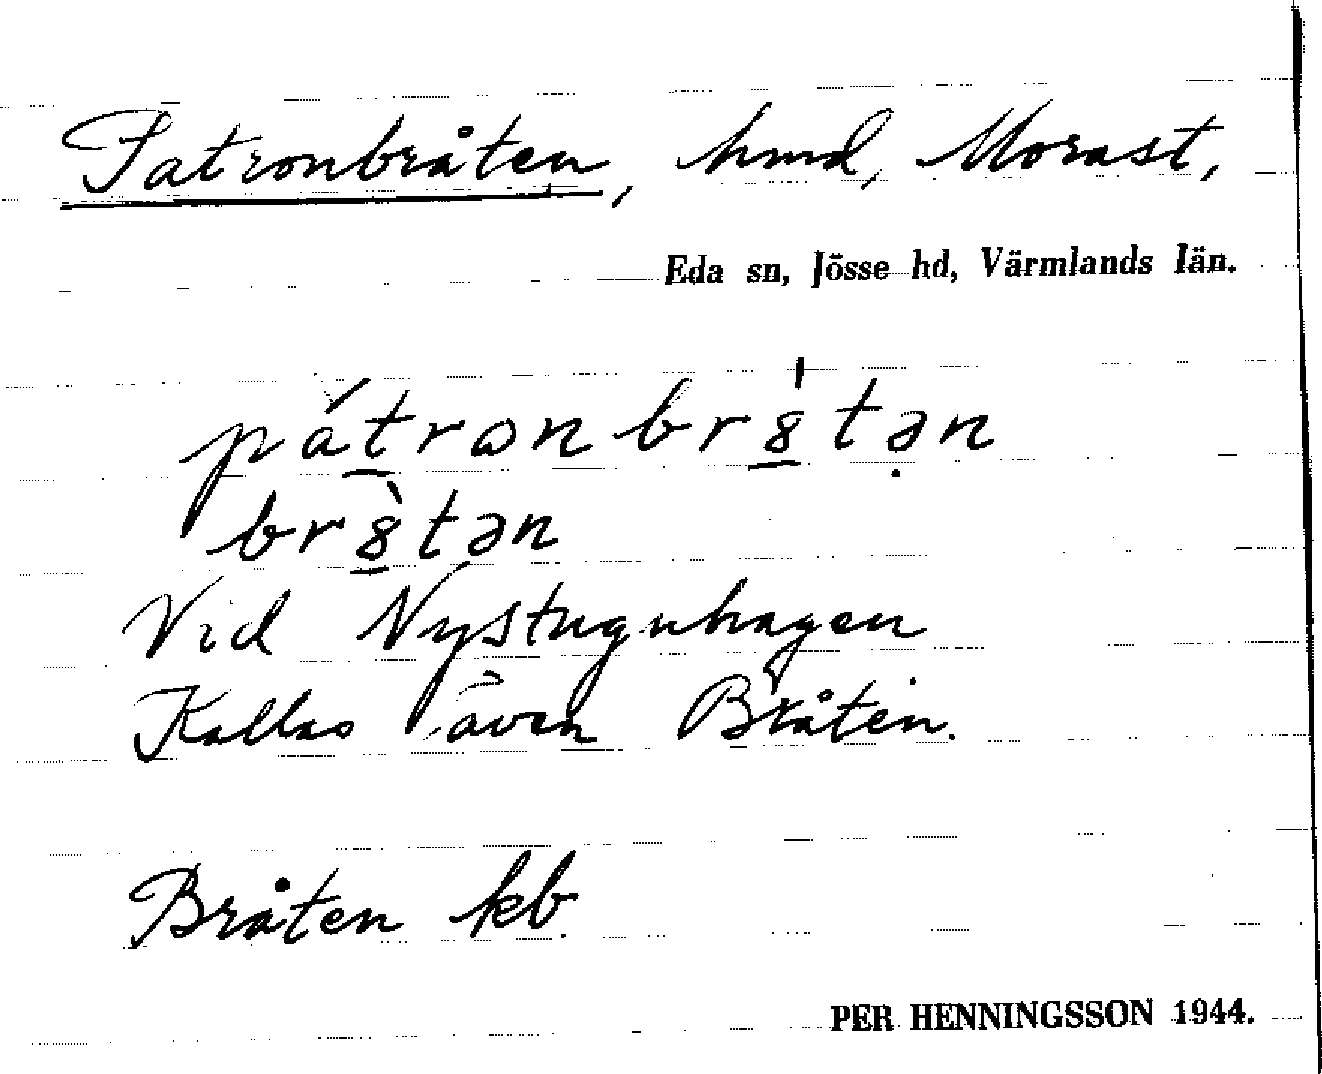 Patronbråten, hmd, Morast,
Eda sn, Jösse hd, Värmlands län.
pátronbr8̲̍tə̣n
br8̲̀tən
Vid Nystuguhagen
Kallas även Bråten.
Bråten kb.
PER HENNINGSSON 1944.